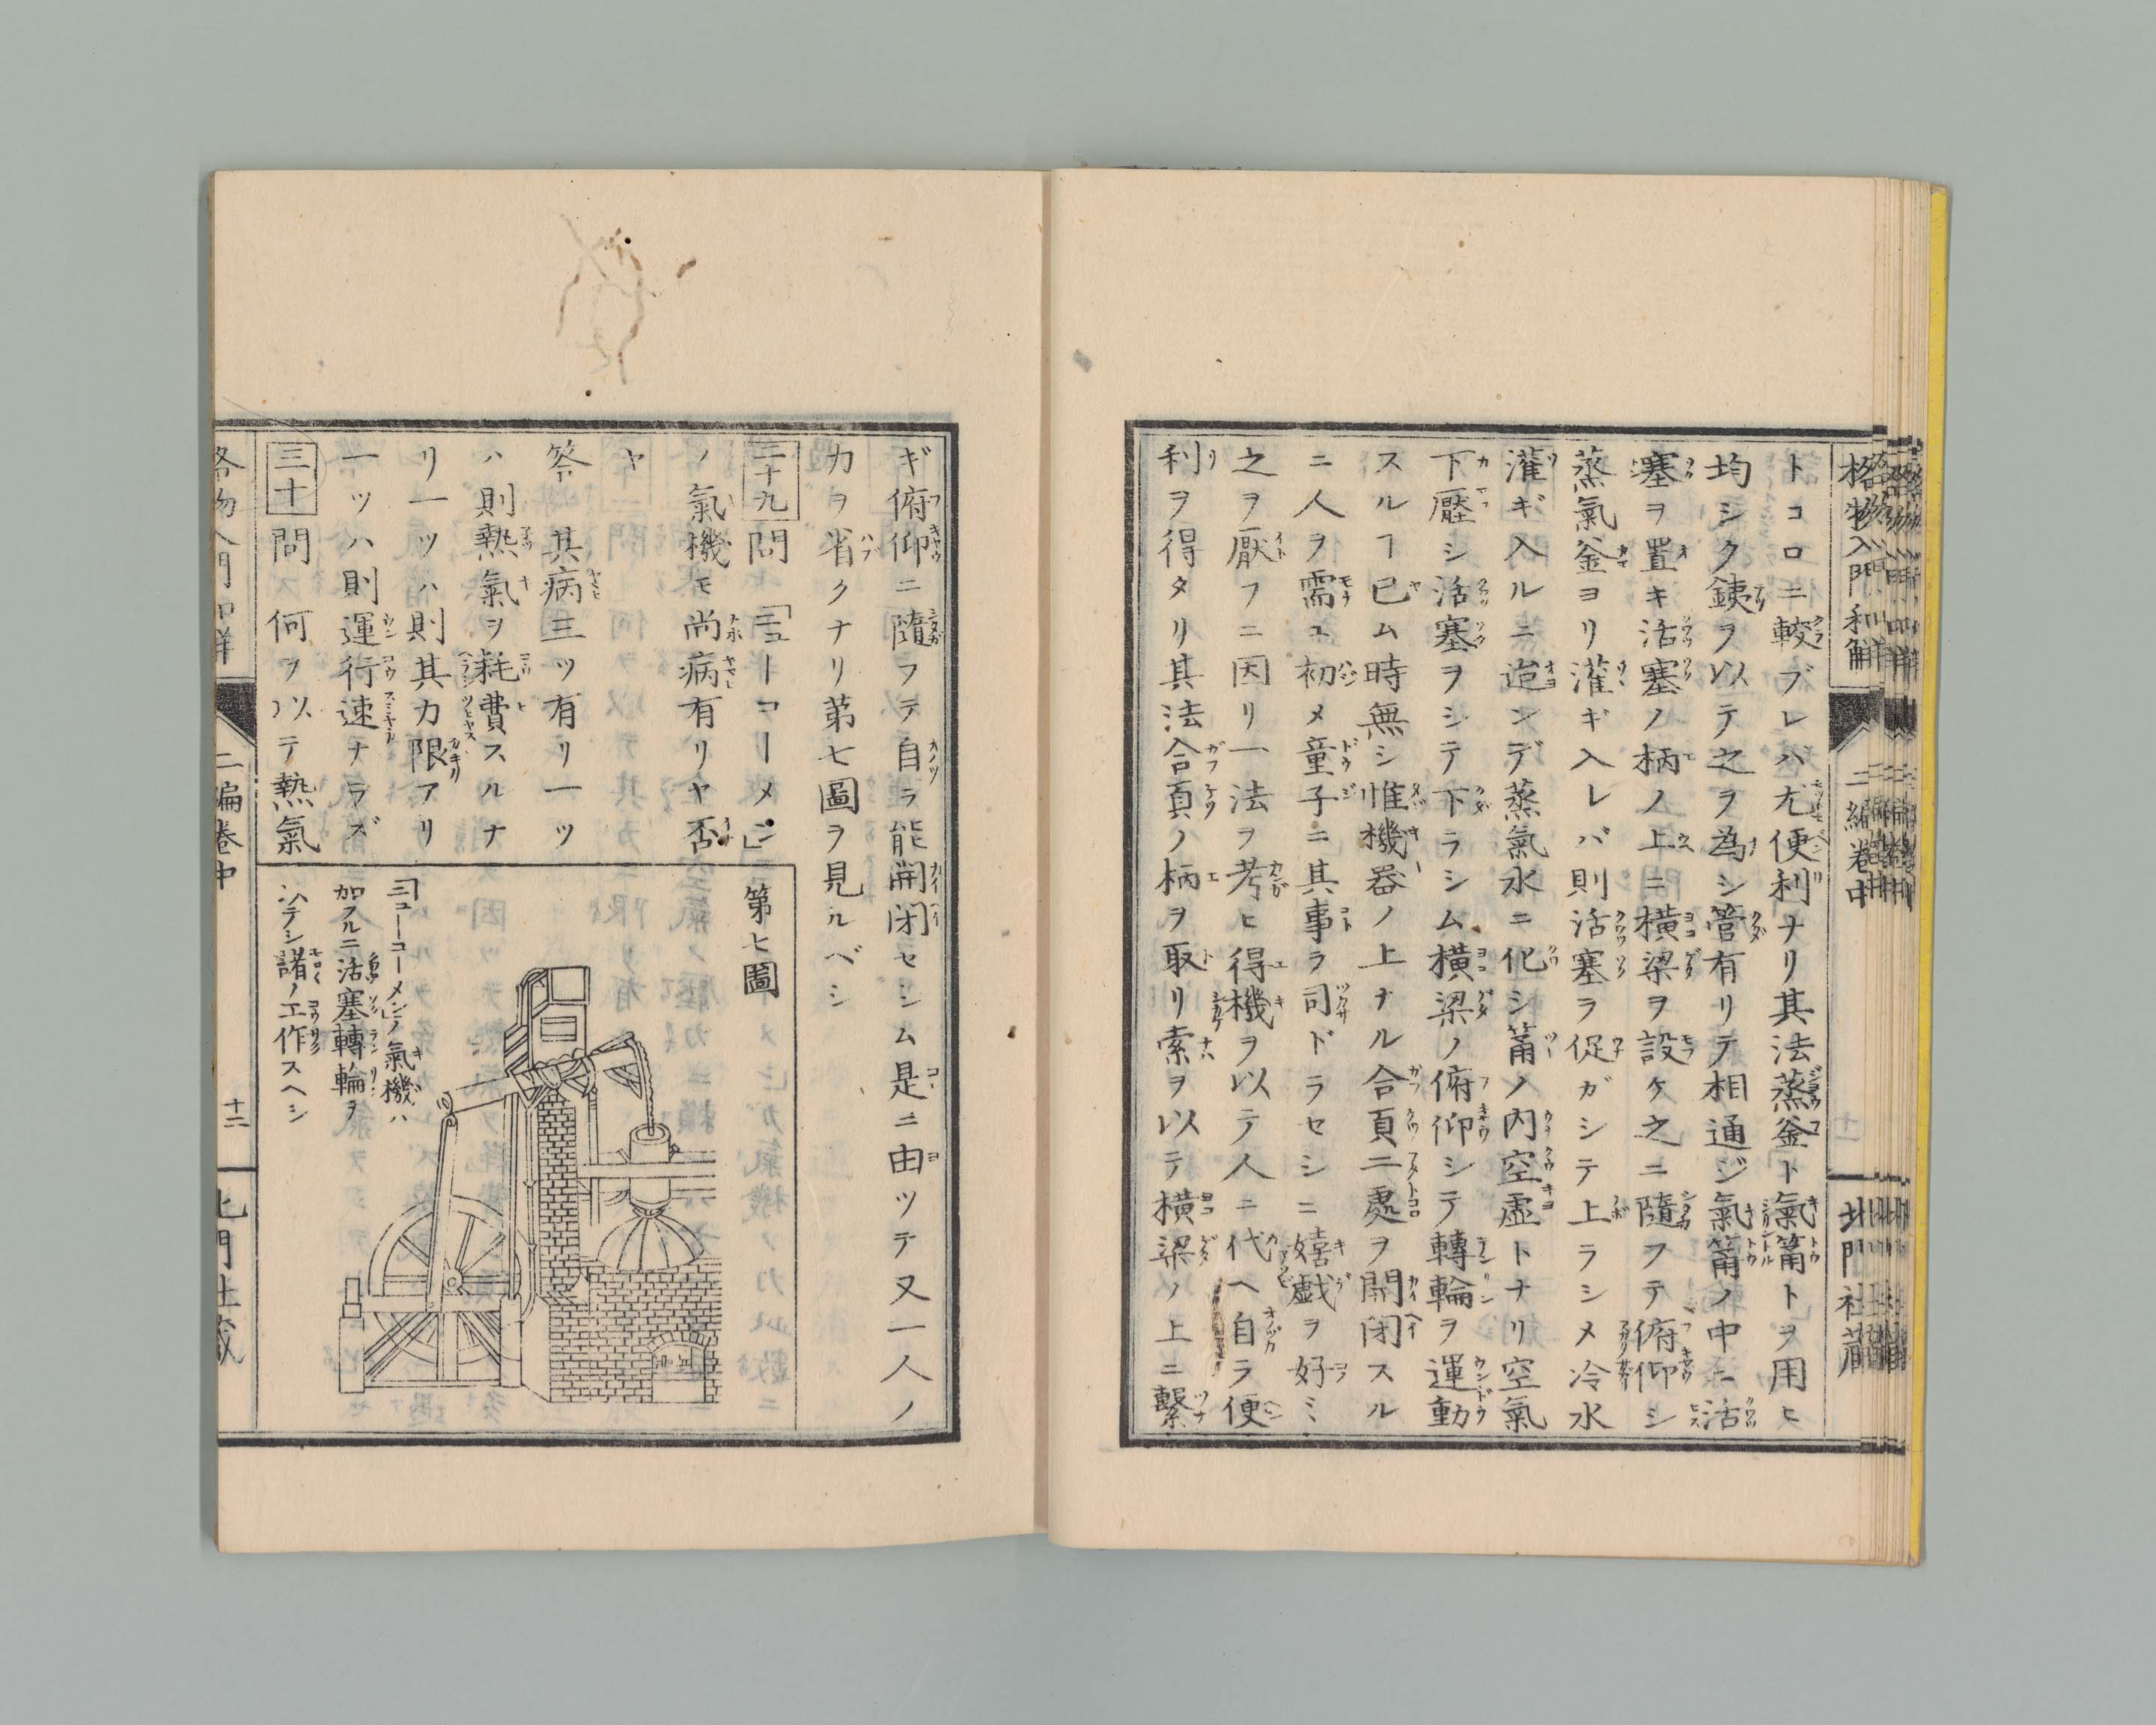 格物入門和解
二編卷中
北門社藏
トコロニ較ブレハ尤便利ナリ其法蒸釜ト氣筩トヲ用ヒ
均シク銕ヲ以テ之ヲ為シ管有リテ相通ジ氣筩ノ中ニ活
塞ヲ置キ活塞ノ柄ノ上ニ横梁ヲ設ケ之ニ隨フテ俯仰シ
蒸氣釜ヨリ灌ギ入レバ則活塞ヲ促ガシテ上ラシメ冷水
灌ギ入ルニ迨ンデ蒸氣水ニ化シ筩ノ内空虚トナリ空氣
下壓シ活塞ヲシテ下ラシム横梁ノ俯仰シテ轉輪ヲ運動
スルヿ已ム時無シ惟機器ノ上ナル合頁二處ヲ開閉スル
ニ人ヲ需ユ初メ童子ニ其事ヲ司ドラセシニ嬉戯ヲ好ミ
之ヲ厭フニ因リ一法ヲ考ヒ得機ヲ以テ人ニ代ヘ自ラ便
利ヲ得タリ其法合頁ノ柄ヲ取リ索ヲ以テ横梁ノ上ニ繫
ギ俯仰ニ隨フテ自ラ能開閉セシム是ニ由ツテ又一人ノ
力ヲ省クナリ第七圖ヲ見ルベシ
二十九 問 「ニューコーメン」
ノ氣機モ尚病有リヤ否
ヤ
答 其病三ツ有リ一ツ
ハ則熱氣ヲ耗費スルナ
リ一ツハ則其力限アリ
一ツハ則運行速ナラズ
三十 問 何ヲ以テ熱氣
第七圖
「ニューコーメン」ノ氣機ハ
加フルニ活塞轉輪ヲ
ハテシ諸ノ工作スヘシ
格物入門和解
二編卷中
十二
北門社藏